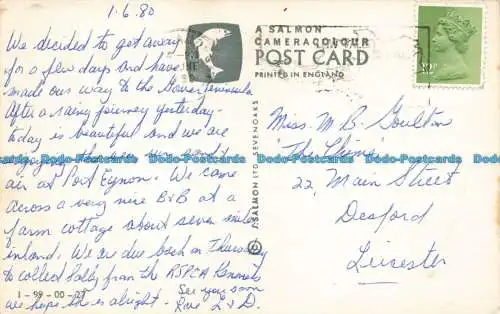 1.6.80
We decided to get away
for a few days and have
made our way to the Gower Peninsula
After a rainy journey yesterday -
today is beautiful and we are
air at Port Eynon. We came
across a very nice B & B at a
farm cottage about seven miles
inland. We are due back on Thursday
to collect Sally from the RSPCA Kennels
we hope she is alright. See you soon
Love L & D.
1-99-00-27
A SALMON
CAMERACOLOUR
POST CARD
PRINTED IN ENGLAND
J SALMON LTD SEVENOAKS ©
Miss. M. B. Goulton
22, Main Street
Desford
Leicester
Dodo-Postcards Dodo-Postcards Dodo-Postcards Dodo-Postcards Dodo-Postcards